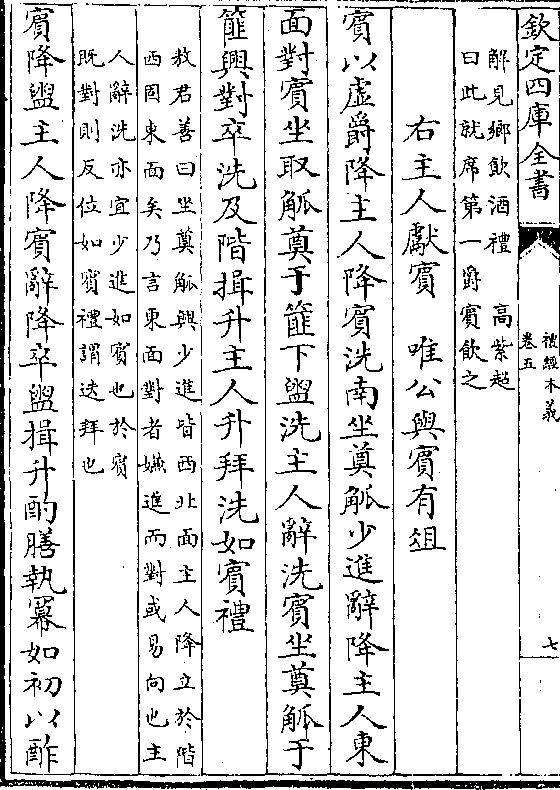 欽定四庫全書
禮經本義
卷五
七
解見鄉飲酒禮　高紫超
曰此就席第一爵賓飲之
右主人獻賓　唯公與賓有俎
賓以虛爵降主人降賓洗南坐奠觚少進辭降主人東
面對賓坐取觚奠于篚下盥洗主人辭洗賓坐奠觚于
篚興對卒洗及階揖升主人升拜洗如賓禮
敖君善曰坐奠觚興少進皆西北面主人降立於階
西固東面矣乃言東面對者嫌進而對或易向也主
人辭洗亦宜少進如賓也於賓
既對則反位如賓禮謂迭拜也
賓降盥主人降賓辭降卒盥揖升酌膳執冪如初以酢